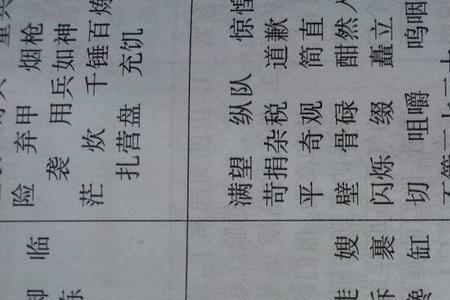 险 弃甲 烟枪
临
袭 用兵如神
茫 炊 千锤百炼
扎营盘 充饥
满望 纵队 惊惶
苛捐杂税 道歉
平 奇观 简直
嫂 壁 骨碌 酣然
裹 闪烁 缀 矗立
缸 切 咀嚼 呜咽